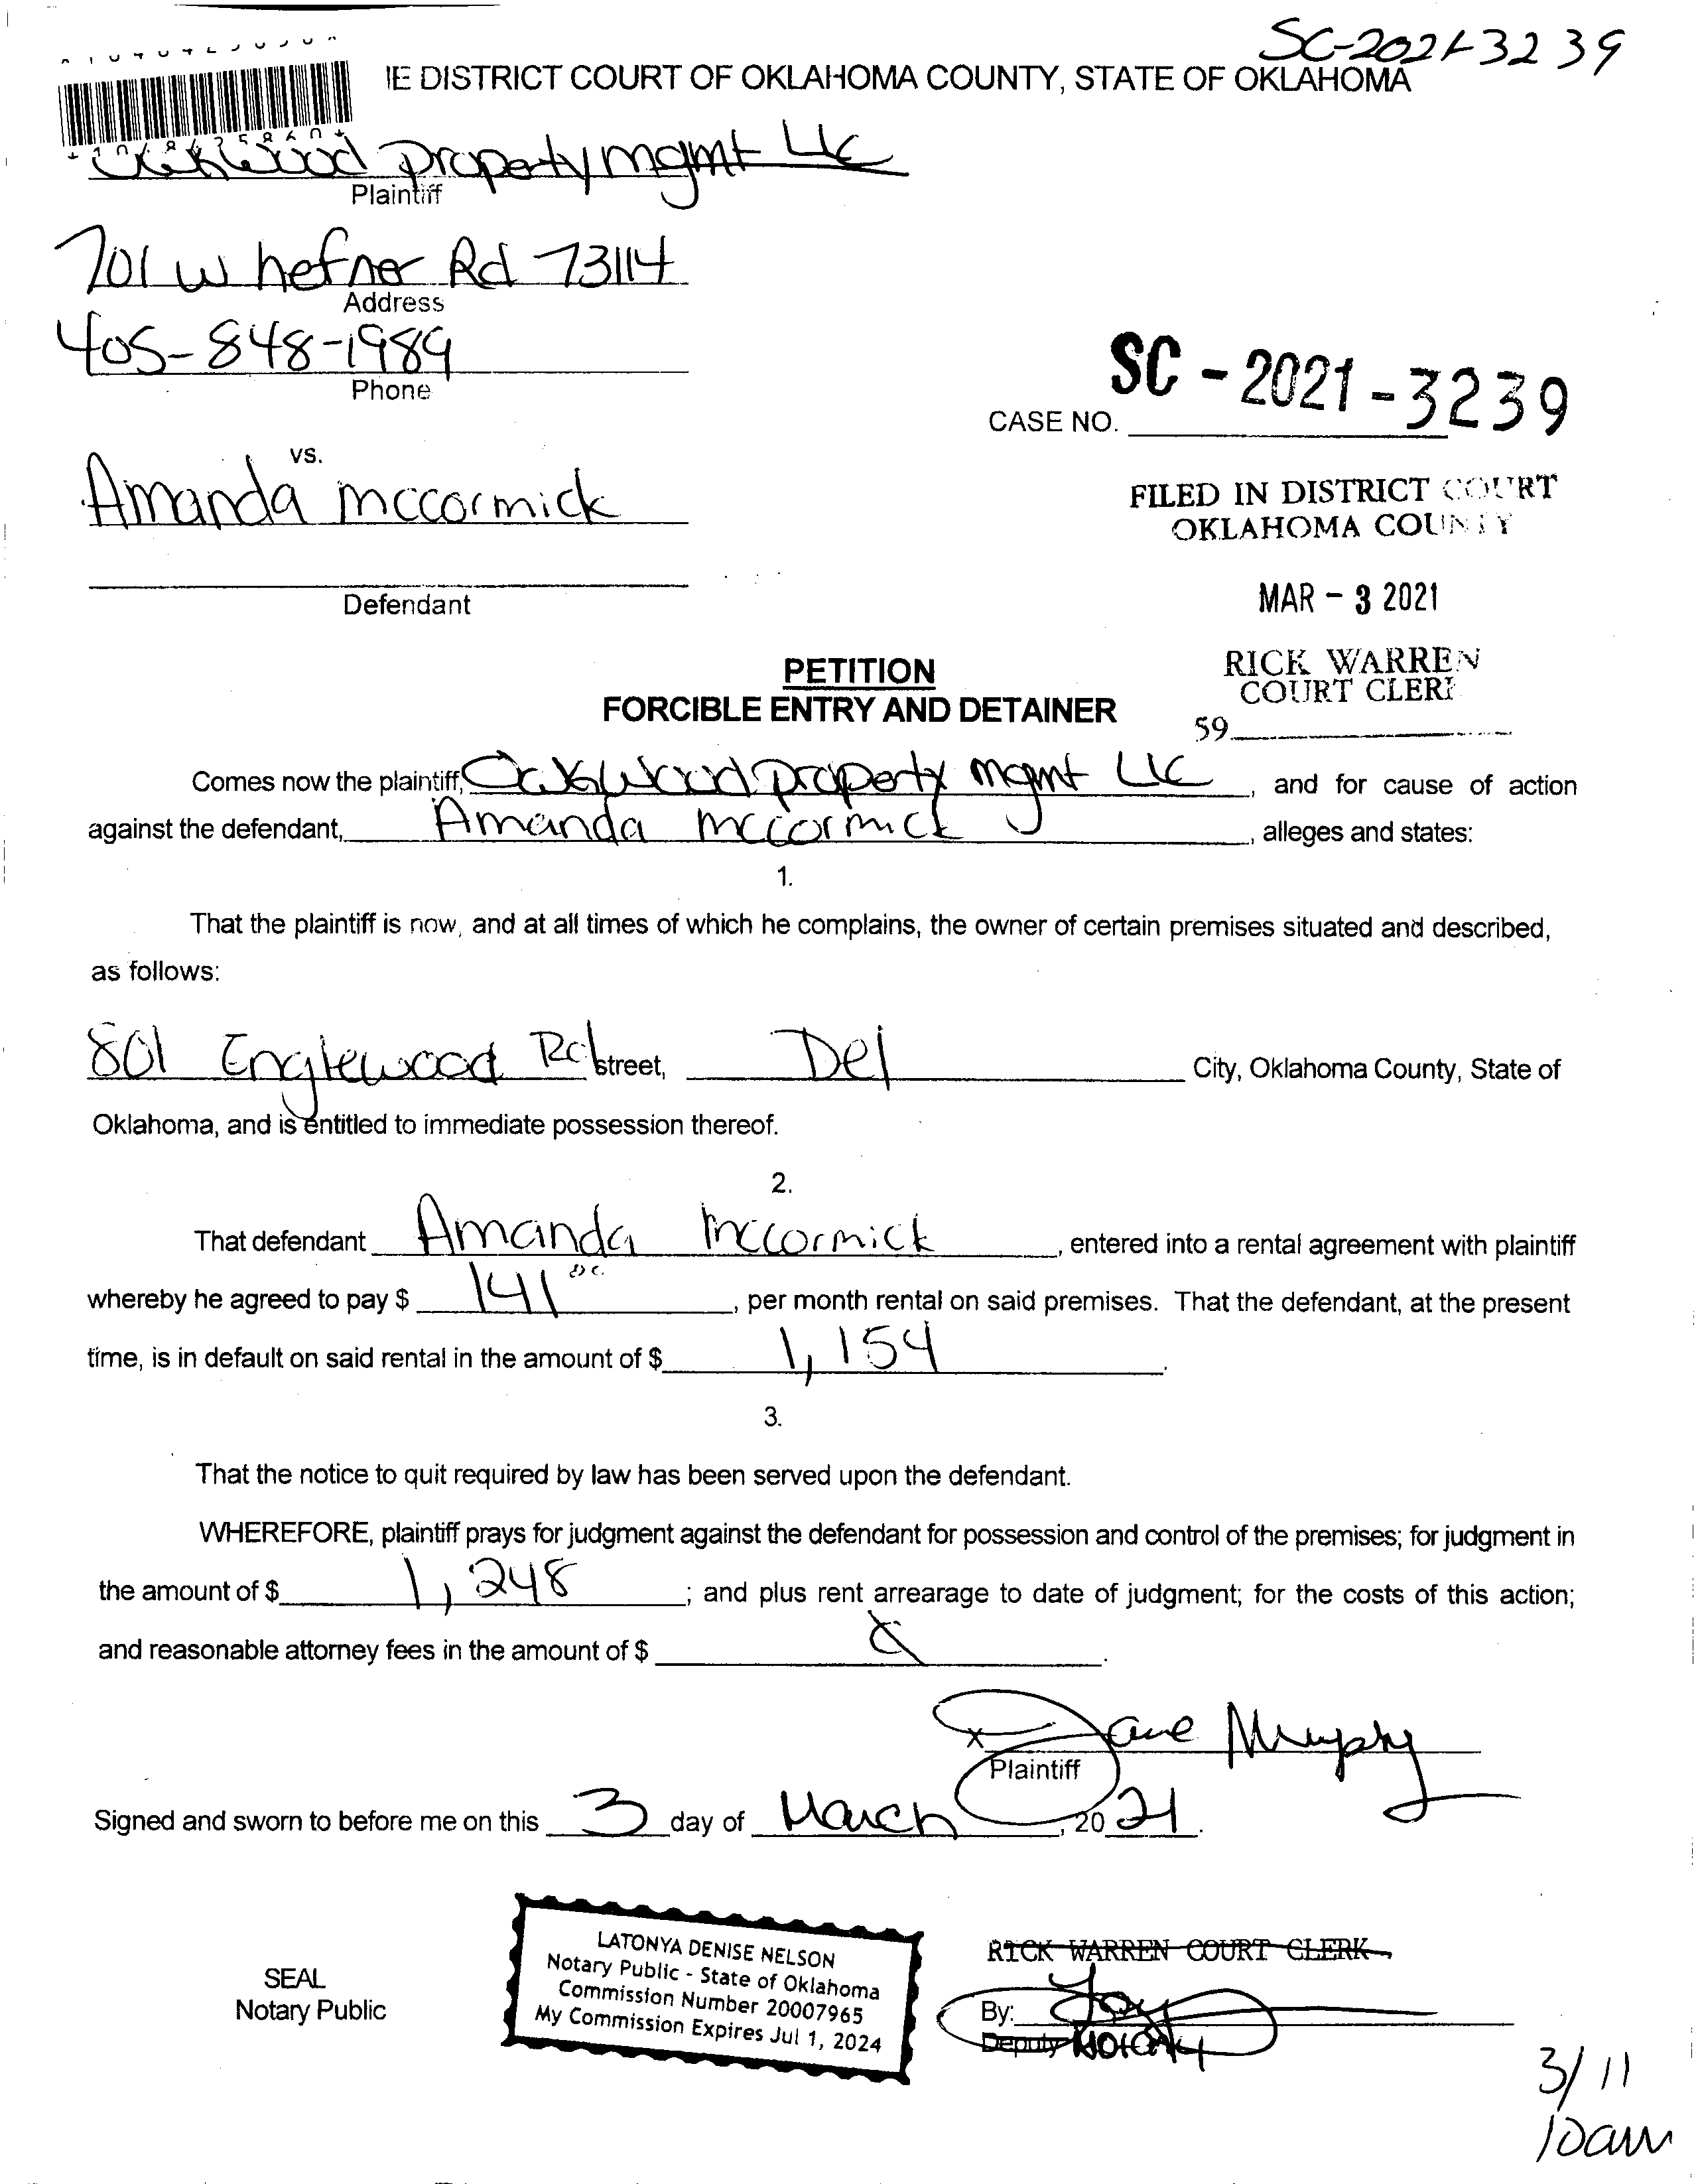 SC-2021-3239
IE DISTRICT COURT OF OKLAHOMA COUNTY, STATE OF OKLAHOMA
Oakwood Property mgmt LLC
Plaintiff
701 W hefner Rd 73114
Address
405-848-1989
Phone
SC-2021-3239
CASE NO.
vs.
Amanda mccormick
FILED IN DISTRICT COURT
OKLAHOMA COUNTY
Defendant
MAR - 3 2021
RICK WARREN
COURT CLERK
59
PETITION
FORCIBLE ENTRY AND DETAINER
Comes now the plaintiff, Oakwood property mgmt LLC, and for cause of action
against the defendant, Amanda mccormick, alleges and states:
1.
That the plaintiff is now, and at all times of which he complains, the owner of certain premises situated and described,
as follows:
801 Englewood Rd street, Del City, Oklahoma County, State of
Oklahoma, and is entitled to immediate possession thereof.
2.
That defendant Amanda mccormick, entered into a rental agreement with plaintiff
whereby he agreed to pay $ 141, per month rental on said premises. That the defendant, at the present
time, is in default on said rental in the amount of $ 1,154.
3.
That the notice to quit required by law has been served upon the defendant.
WHEREFORE, plaintiff prays for judgment against the defendant for possession and control of the premises; for judgment in
the amount of $ 1,248; and plus rent arrearage to date of judgment; for the costs of this action;
and reasonable attorney fees in the amount of $.
x Jane Murphy
Plaintiff
Signed and sworn to before me on this 3 day of March, 2021.
LATONYA DENISE NELSON
Notary Public - State of Oklahoma
Commission Number 20007965
My Commission Expires Jul 1, 2024
SEAL
Notary Public
RICK WARREN COURT CLERK
By:
Deputy Notary
3/11
10am